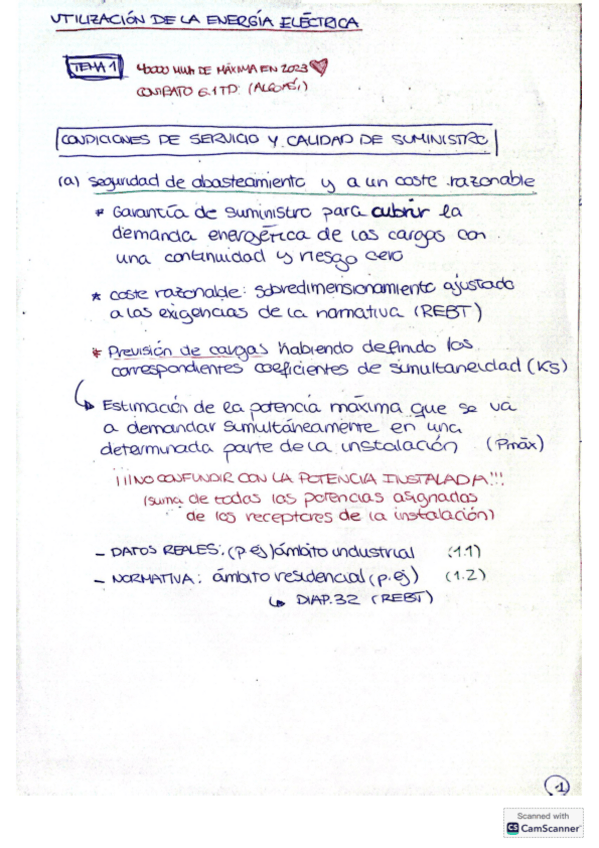 UTILIZACIÓN DE LA ENERGÍA ELÉCTRICA
TEMA 1
40000 MWh DE MÁXIMA EN 2023
CONTRATO 6.1TD: (ALGOMÉI)
CONDICIONES DE SERVICIO Y CALIDAD DE SUMINISTRO
(a) seguridad de abasteamiento y a un coste razonable
* Garantía de suministro para cubrir la
demanda energética de las cargas con
una continuidad y riesgo cero
* coste razonable: sobredimensionamiento ajustado
a las exigencias de la normativa (REBT)
* Previsión de cargas habiendo definido los
correspondientes coeficientes de simultaneidad (Ks)
↳ Estimación de la potencia máxima que se va
a demandar simultáneamente en una
determinada parte de la instalación (Pmáx)
¡¡¡NO CONFUNDIR CON LA POTENCIA INSTALADA!!!
(suma de todas las potencias asignadas
de los receptores de la instalación)
- DATOS REALES: (p.ej) ámbito industrial (1.1)
- NORMATIVA: ámbito residencial (p.ej) (1.2)
↳ DIAP.32 (REBT)
1
Scanned with
CS CamScanner